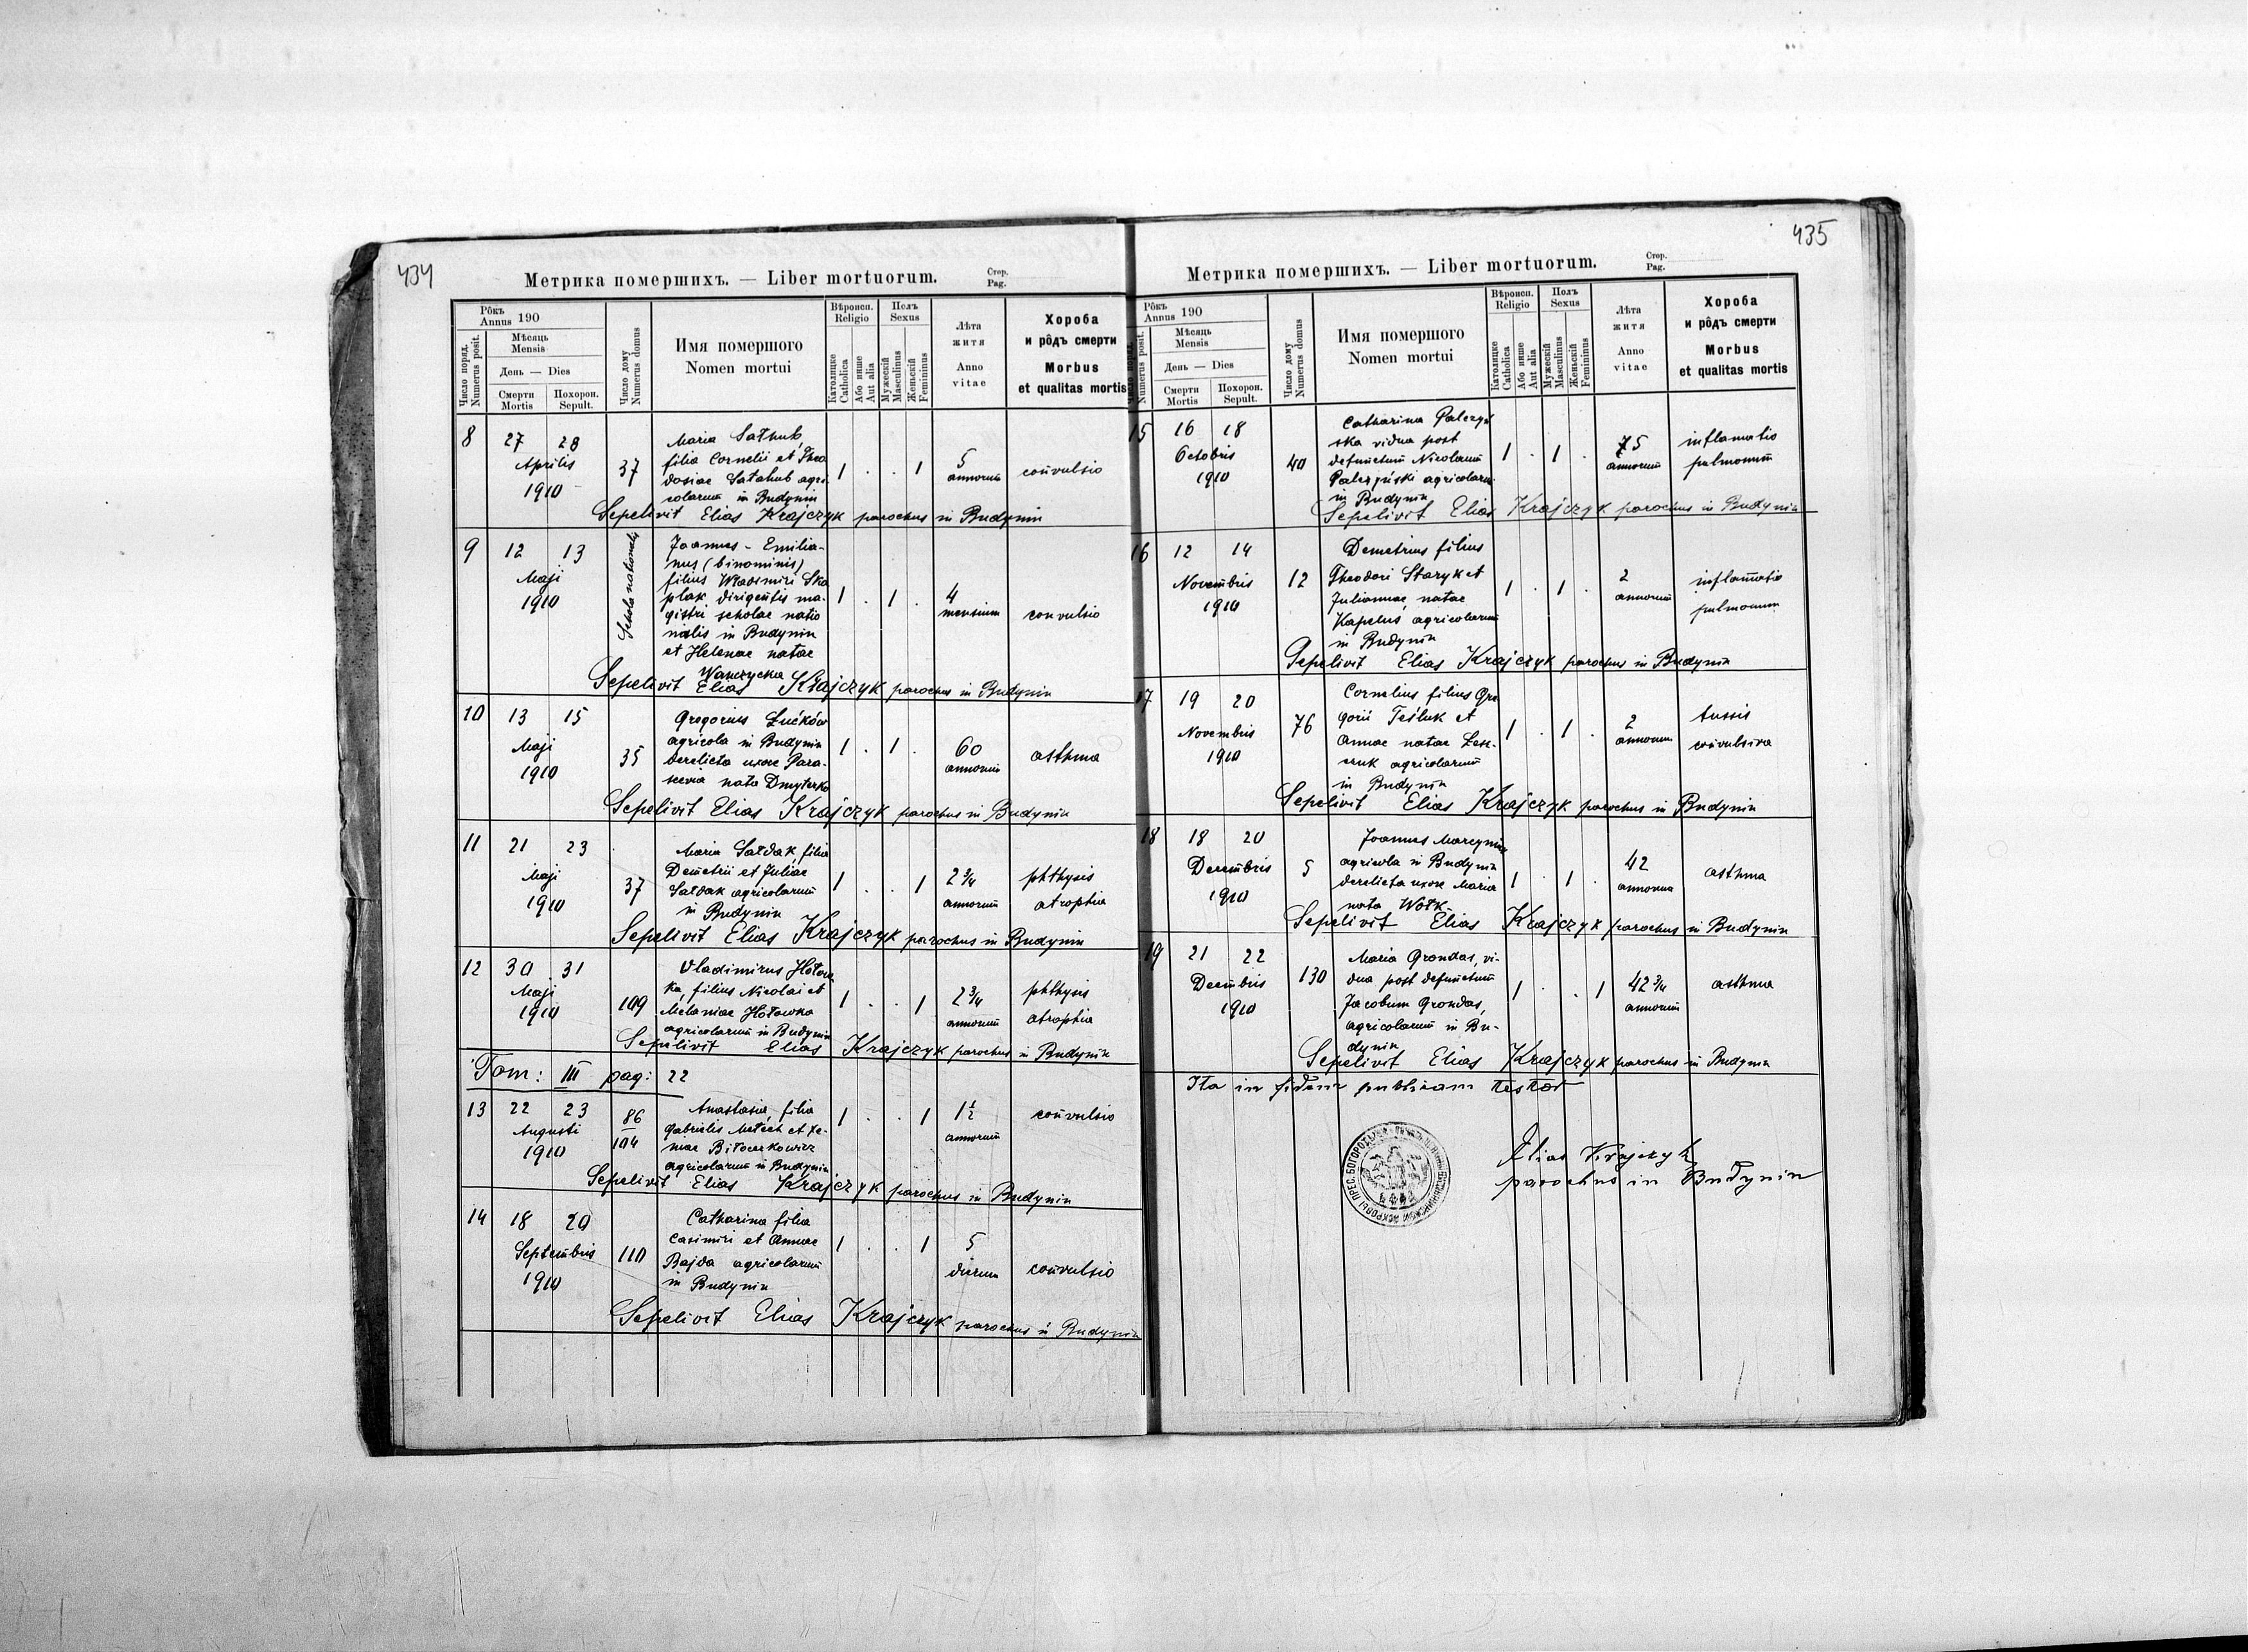 434
Метрика помершихъ. — Liber mortuorum.
Стор.
Pag.
Число поряд.
Numerus posit.
Рôкъ
Annus 190
Мѣсяць
Mensis
День — Dies
Смерти
Mortis
Похорон.
Sepult.
Число дому
Numerus domus
Имя помершого
Nomen mortui
Вѣроисп.
Religio
Католицке
Catholica
Або инше
Aut alia
Полъ
Sexus
Мужескій
Masculinus
Женьскій
Femininus
Лѣта
житя
Anno
vitae
Хороба
и рôдъ смерти
Morbus
et qualitas mortis
8 27 28 Aprilis 1910 37
Maria Sałhub,
filia Cornelii et Theo
dosiae Sałahub agri-
colarum in Budynin
1 . . 1 5 annorum convulsio
Sepelivit Elias Krajczyk parochus in Budynin
9 12 13 Maji 1910 Schola nationalis
Joannes - Emilia-
nus (binominis)
filius Wladimiri Ska
plak dirigentis ma-
gistri scholae natio
nalis in Budynin
et Helenae natae
Wanczycka
1 . 1 . 4 mensium convulsio
Sepelivit Elias Krajczyk parochus in Budynin
10 13 15 Maji 1910 35
Gregorius Łućków
agricola in Budynin
derelicta uxore Para-
scevia nata Dmyterko
1 . 1 . 60 annorum asthma
Sepelivit Elias Krajczyk parochus in Budynin
11 21 23 Maji 1910 37
Maria Sałdak, filia
Demetrii et Juliae
Sałdak agricolarum
in Budynin
1 . . 1 2 3/4 annorum phthysis atrophia
Sepelivit Elias Krajczyk parochus in Budynin
12 30 31 Maji 1910 109
Vladimirus Hołow
ka, filius Nicolai et
Melaniae Hołowka
agricolarum in Budynin
1 . . 1 2 3/4 annorum phthysis atrophia
Sepelivit Elias Krajczyk parochus in Budynin
Tom: III pag: 22
13 22 23 Augusti 1910 86 104
Anastasia, filia
Gabrielis Metech et Xe-
niae Biłocerkowicz
agricolarum in Budynin
1 . . 1 1 1/2 annorum convulsio
Sepelivit Elias Krajczyk parochus in Budynin
14 18 20 Septembris 1910 110
Catharina filia
Casimiri et Annae
Bajda agricolarum
in Budynin
1 . . 1 5 dierum convulsio
Sepelivit Elias Krajczyk parochus in Budynin
435
Метрика помершихъ. — Liber mortuorum.
Стор.
Pag.
Numerus posit.
Рôкъ
Annus 190
Мѣсяць
Mensis
День — Dies
Смерти
Mortis
Похорон.
Sepult.
Число дому
Numerus domus
Имя помершого
Nomen mortui
Вѣроисп.
Religio
Католицке
Catholica
Або инше
Aut alia
Полъ
Sexus
Мужескій
Masculinus
Женьскій
Femininus
Лѣта
житя
Anno
vitae
Хороба
и рôдъ смерти
Morbus
et qualitas mortis
15 16 18 Octobris 1910 40
Catharina Palczyń
ska vidua post
defunctum Nicolaum
Palczyński agricolarum
in Budynin
1 . 1 . 75 annorum inflamatio pulmonum
Sepelivit Elias Krajczyk parochus in Budynin
16 12 14 Novembris 1910 12
Demetrius filius
Theodori Staryk et
Julianae, natae
Kapelus agricolarum
in Budynin
1 . 1 . 2 annorum inflamatio pulmonum
Sepelivit Elias Krajczyk parochus in Budynin
17 19 20 Novembris 1910 76
Cornelius, filius Gre
gorii Teśluk et
Annae natae
agricolarum
in Budynin
1 . 1 . 2 annorum tussis convulsiva
Sepelivit Elias Krajczyk parochus in Budynin
18 18 20 Decembris 1910 5
Joannes
agricola in Budynin
derelicta uxore Maria
nata Wołk
1 . 1 . 42 annorum asthma
Sepelivit Elias Krajczyk parochus in Budynin
19 21 22 Decembris 1910 130
Maria Grondas, vi-
dua post defunctum
Jacobum Grondas,
agricolarum in Bu-
dynin
1 . . 1 42 3/4 annorum asthma
Sepelivit Elias Krajczyk parochus in Budynin
Ita in fidem publicam testor
Elias Krajczyk
parochus in Budynin